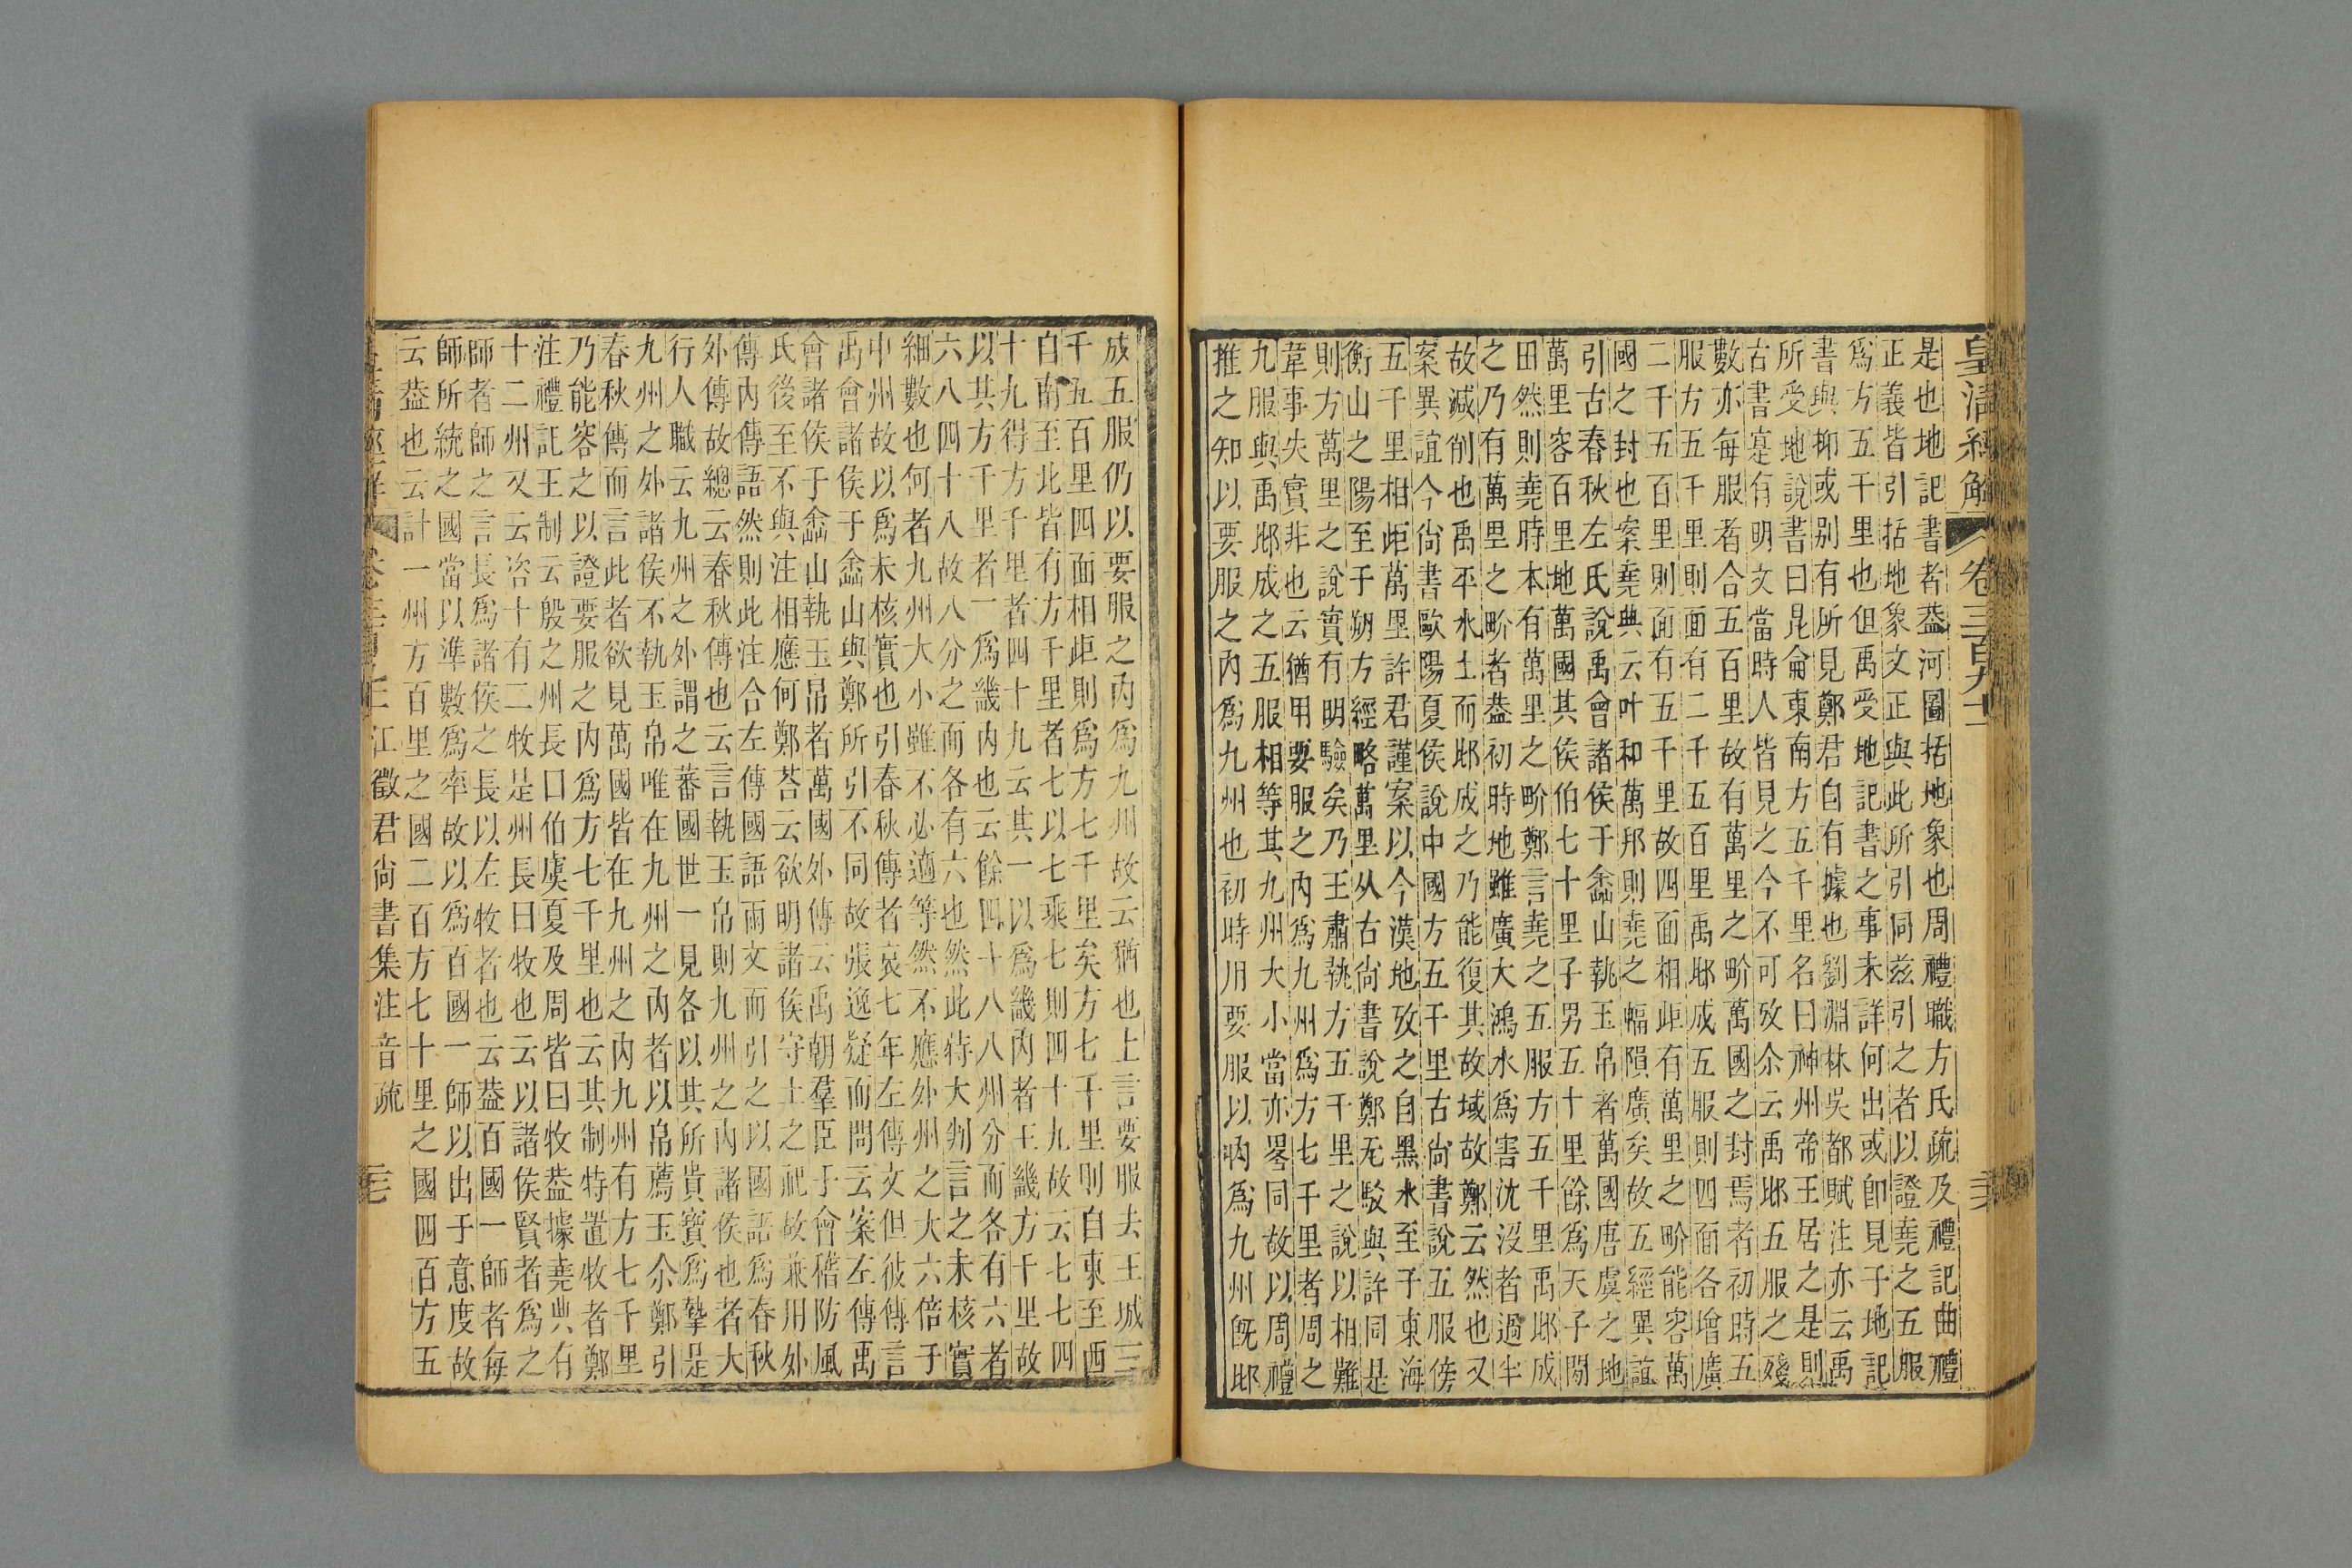 皇清經解 卷三百九十二
是也地記書者葢河圖括地象也周禮職方氏疏及禮記曲禮
正義皆引括地象文正與此所引同兹引之者以證堯之五服
爲方五千里也但禹受地記書之事未詳何出或卽見于地記
書與抑或别有所見鄭君自有據也劉淵林吳都賦注亦云禹
所受地說書曰昆侖東南方五千里名曰神州帝王居之是則
古書寔有明文當時人皆見之今不可攷余云禹䢼五服之殘
數亦每服者合五百里故有萬里之畍萬國之封焉者初時五
服方五千里則面有二千五百里禹䢼成五服則四面各增廣
二千五百里則面有五千里故四面相距有萬里之畍能容萬
國之封也案堯典云叶和萬邦則堯之幅隕廣矣故五經異誼
引古春秋左氏說禹會諸侯于嵞山執玉帛者萬國唐虞之地
萬里容百里地萬國其侯伯七十里子男五十里餘爲天子閒
田然則堯時本有萬里之畍鄭言堯之五服方五千里禹䢼成
之乃有萬里之畍者葢初時地雖廣大鴻水爲害沈沒者過半
故減削也禹平水土而䢼成之乃能復其故域故鄭云然也又
案異誼今尙書歐陽夏侯說中國方五千里古尙書說五服㫄
五千里相距萬里許君謹案以今漢地攷之自黑水至于東海
衡山之陽至于朔方經略萬里从古尙書說鄭无駁與許同是
則方萬里之說實有明驗矣乃王肅執方五千里之說以相難
韋事失實非也云猶用要服之內爲九州爲方七千里者周之
九服與禹䢼成之五服相等其九州大小當亦畧同故以周禮
推之知以要服之內爲九州也初時用要服以內爲九州旣䢼
成五服仍以要服之內爲九州故云猶也上言要服去王城三
千五百里四面相距則爲方七千里矣方七千里則自東至西
自南至北皆有方千里者七以七乘七則四十九故云七七四
十九得方千里者四十九云其一以爲畿內者王畿方千里故
以其方千里者一爲畿內也云餘四十八八州分而各有六者
六八四十八故八分之而各有六也然此特大判言之未核實
細數也何者九州大小雖不必適等然不應外州之大六倍于
中州故以爲未核實也引春秋傳者哀七年左傳文但彼傳言
禹會諸侯于嵞山與鄭所引不同故張逸疑而問云案左傳禹
會諸侯于嵞山執玉帛者萬國外傳云禹朝羣臣于會稽防風
氏後至不與注相應何鄭荅云欲明諸侯守土之祀故兼用外
傳內傳語然則此注合左傳國語兩文而引之以國語爲春秋
外傳故總云春秋傳也云言執玉帛則九州之內諸侯也者大
行人職云九州之外謂之蕃國世一見各以其所貴寶爲摯是
九州之外諸侯不執玉帛唯在九州之內者以帛薦玉余鄭引
春秋傳而言此者欲見萬國皆在九州之內九州有方七千里
乃能容之以證要服之內爲方七千里也云其制特置牧者鄭
注禮記王制云殷之州長曰伯虞夏及周皆曰牧葢據堯典有
十二州又云咨十有二牧是州長曰牧也云以諸侯賢者爲之
師者師之言長爲諸侯之長以左牧者也云葢百國一師者每
師所統之國當以準數爲率故以爲百國一師以出于意度故
云葢也云計一州方百里之國二百方七十里之國四百方五
江徵君尙書集注音疏